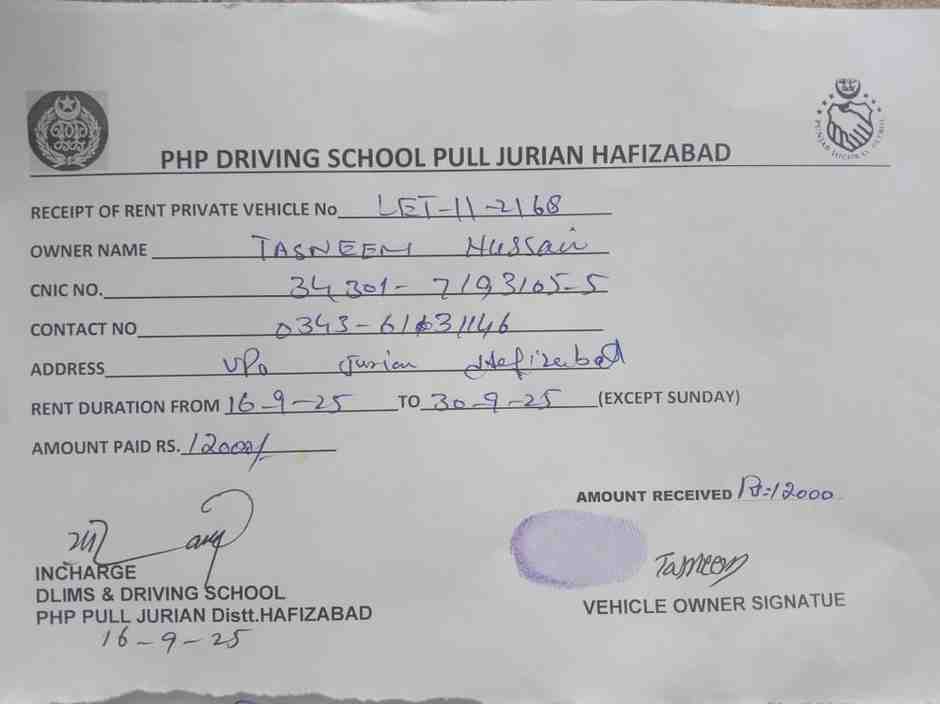 PHP DRIVING SCHOOL PULL JURIAN HAFIZABAD
PUNJAB HIGHWAY PATROL
RECEIPT OF RENT PRIVATE VEHICLE No LET-11-2168
OWNER NAME TASNEEM HUSSAIN
CNIC NO. 34301-7193105-5
CONTACT NO 0343-
ADDRESS VPO Jurian Hafizabad
RENT DURATION FROM 16-9-25 TO 30-9-25 (EXCEPT SUNDAY)
AMOUNT PAID RS. 12000/-
AMOUNT RECEIVED Rs:12000
Tasneem
INCHARGE
DLIMS & DRIVING SCHOOL
PHP PULL JURIAN Distt.HAFIZABAD
16-9-25
VEHICLE OWNER SIGNATUE